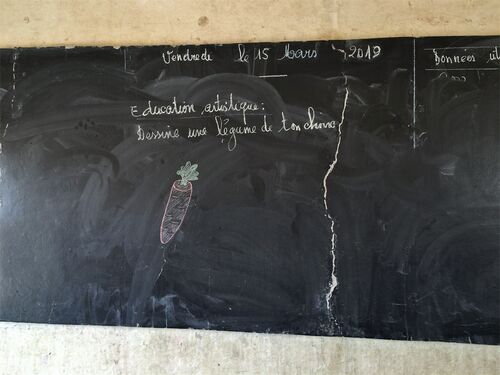 Vendrede le 15 Mars 2019
Données
Education artistique:
Dessine une légume de ton choix